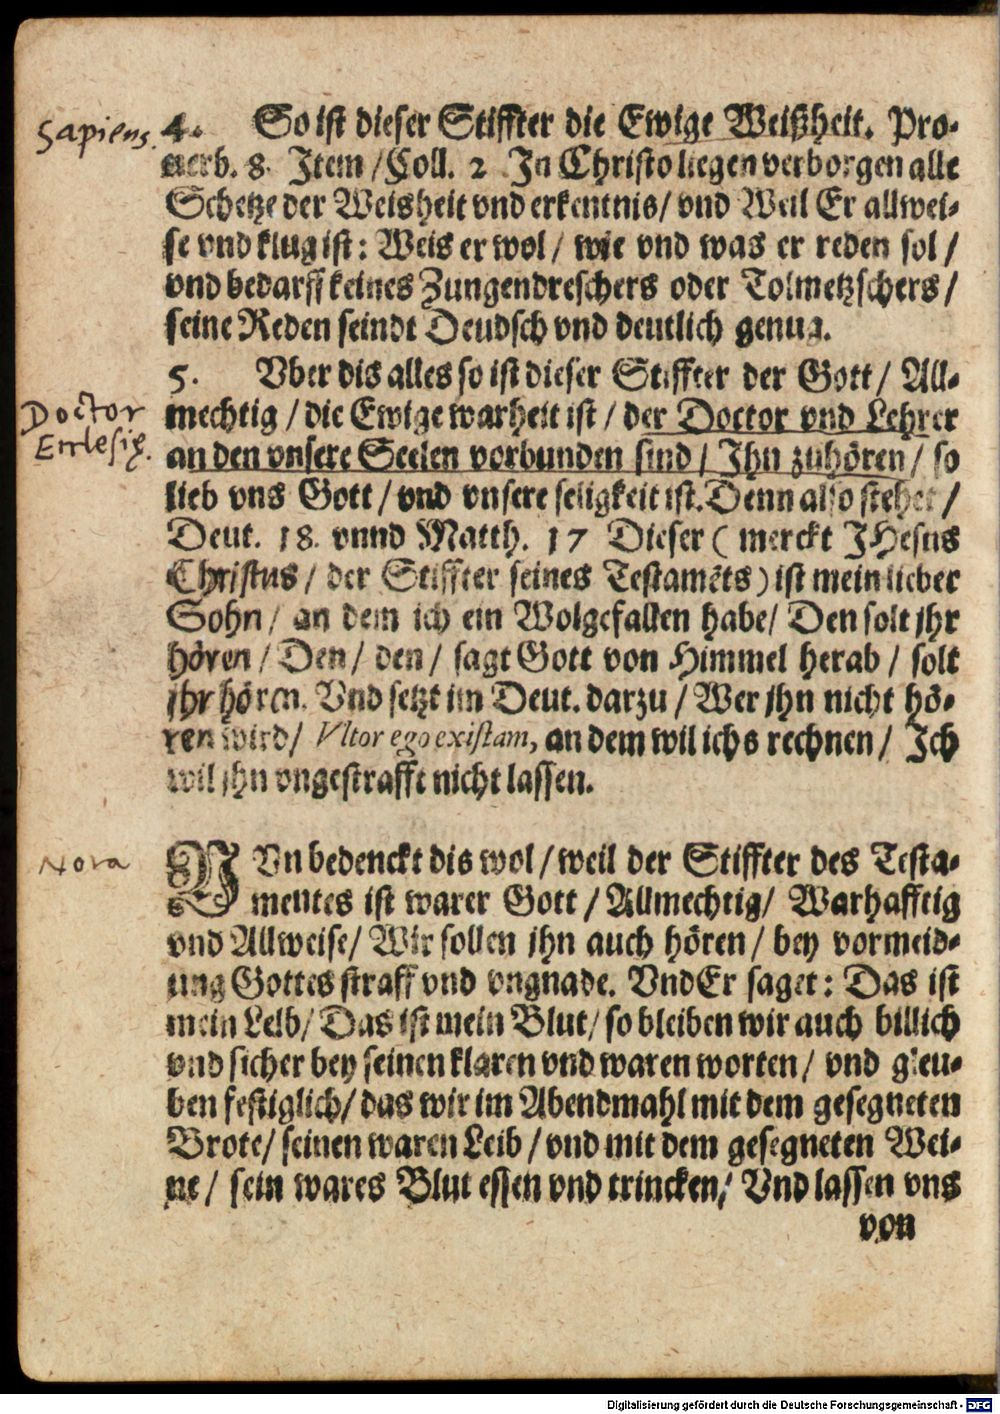 Sapiens. 4. So ist dieser Stiffter die Ewige Weißheit. Pro-
uerb. 8. Item / Coll. 2 In Christo liegen verborgen alle
Schetze der Weisheit vnd erkentnis / vnd Weil Er allwei-
se vnd klug ist: Weis er wol / wie vnd was er reden sol /
vnd bedarff keines Zungendreschers oder Tolmetzschers /
seine Reden seindt Deudsch vnd deutlich genug.
5. Vber dis alles so ist dieser Stiffter der Gott / All-
Doctor mechtig / die Ewige warheit ist / der Doctor vnd Lehrer
Ecclesiæ. an den vnsere Seelen vorbunden sind / Ihn zuhören / so
lieb vns Gott / vnd vnsere seligkeit ist. Denn also stehet /
Deut. 18. vnnd Matth. 17 Dieser ( merckt JHesus
Christus / der Stiffter seines Testamẽts ) ist mein lieber
Sohn / an dem ich ein Wolgefallen habe / Den solt jhr
hören / Den / den / sagt Gott von Himmel herab / solt
jhr hören. Vnd setzt im Deut. darzu / Wer jhn nicht hö-
ren wird / Vltor ego existam, an dem wil ichs rechnen / Ich
wil jhn vngestrafft nicht lassen.
Nota NVn bedenckt dis wol / weil der Stiffter des Testa-
mentes ist warer Gott / Allmechtig / Warhafftig
vnd Allweise / Wir sollen jhn auch hören / bey vormeid-
ung Gottes straff vnd vngnade. Vnd Er saget: Das ist
mein Leib / Das ist mein Blut / so bleiben wir auch billich
vnd sicher bey seinen klaren vnd waren worten / vnd gleu-
ben festiglich / das wir im Abendmahl mit dem gesegneten
Brote / seinen waren Leib / vnd mit dem gesegneten Wei-
ne / sein wares Blut essen vnd trincken / Vnd lassen vns
von
Digitalisierung gefördert durch die Deutsche Forschungsgemeinschaft - DFG